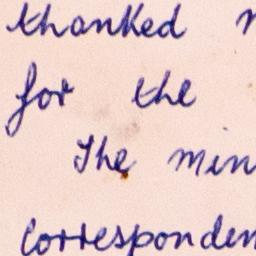 thanked
for the
The min
corresponden